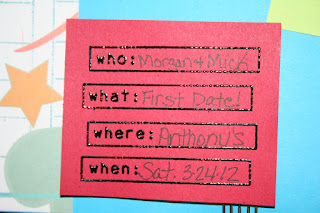 who: Morgan & Mick
what: First Date!
where: Anthony's
when: Sat. 3·24·12